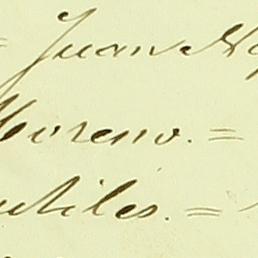 = Juan
Moreno. =
utiles. =